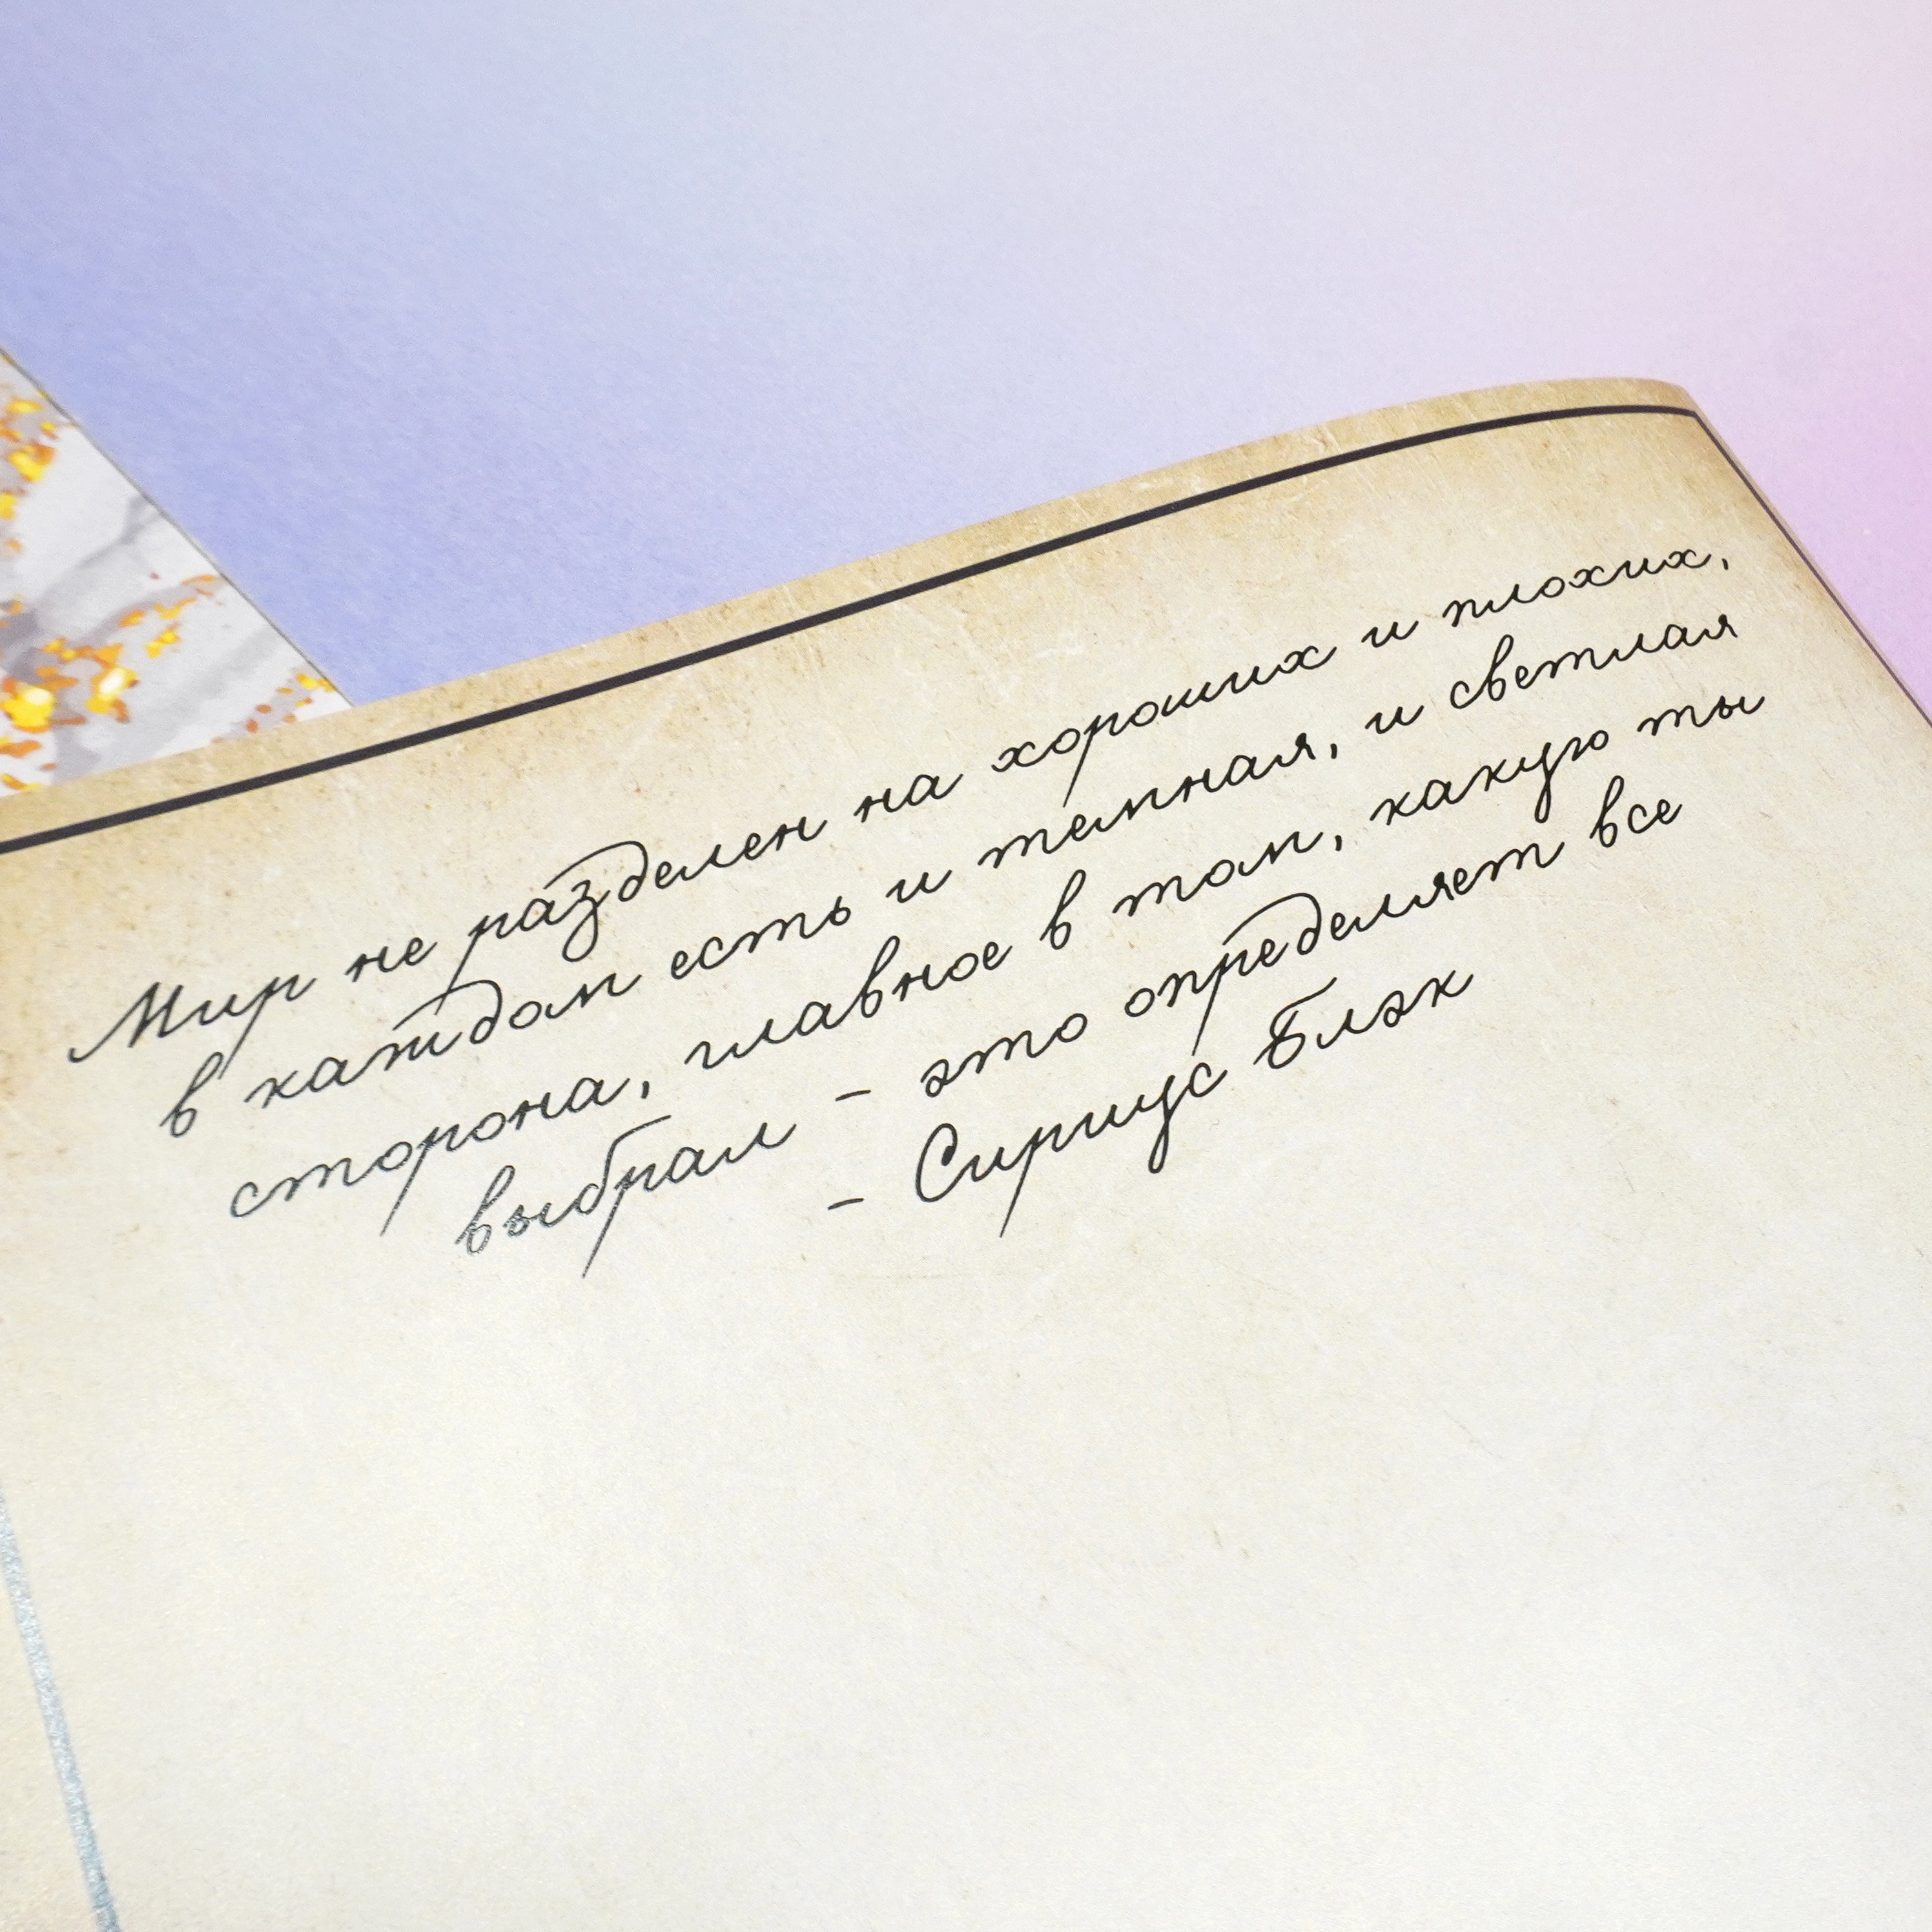 Мир не разделен на хороших и плохих,
в каждом есть и темная, и светлая
сторона, главное в том, какую ты
выбрал - это определяет все
- Сириус Блэк